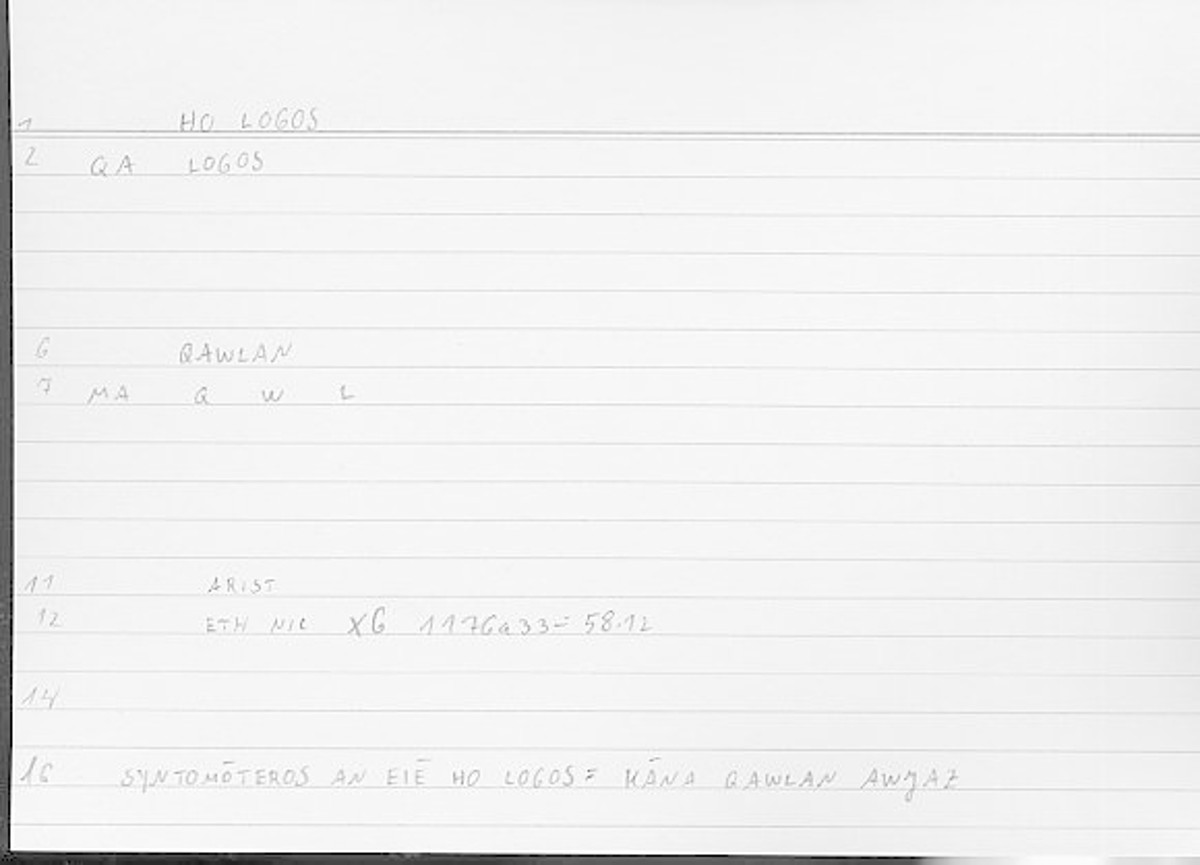 1 HO LOGOS
2 QA LOGOS
6 QAWLAN
7 MA Q W L
11 ARIST
12 ETH NIC X6 1176a33= 58.12
14
16 SYNTOMŌTEROS AN EIĒ HO LOGOS = KĀNA QAWLAN AWJAZ